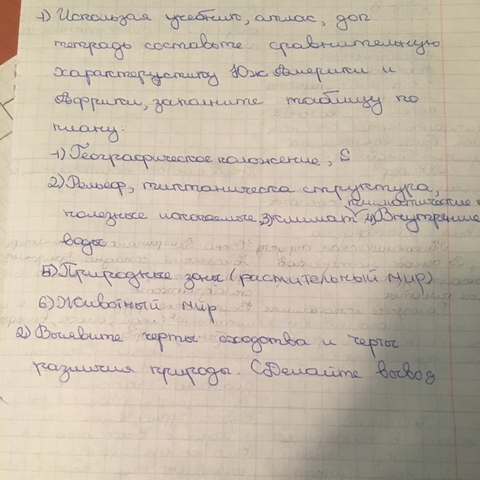 1) Используя учебник, атлас, доп
тетрадь составьте сравнительную
характеристику Юж Америки и
Африки, заполните таблицу по
плану:
1) Географическое положение, S
2) Рельеф, тиктаническа структура,
климатические
полезные ископаемые, 3) климат 4) Внутрение
воды
5) Природные зоны (растительный мир)
6) Животный мир
2) Выявите черты сходства и черты
различия природы. Сделайте вывод